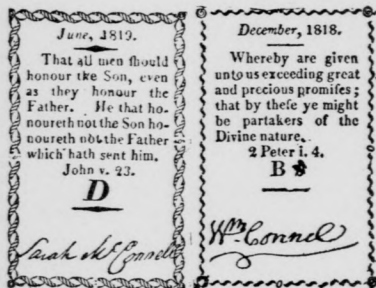 June, 1819.
That all men ſhould
honour the Son, even
as they honour the
Father. He that ho-
noureth not the Son ho-
noureth not the Father
which hath sent him.
John v. 23.
D
Sarah McConnell
December, 1818.
Whereby are given
unto us exceeding great
and precious promiſes;
that by theſe ye might
be partakers of the
Divine nature.
2 Peter i. 4.
B
Wm. Connel